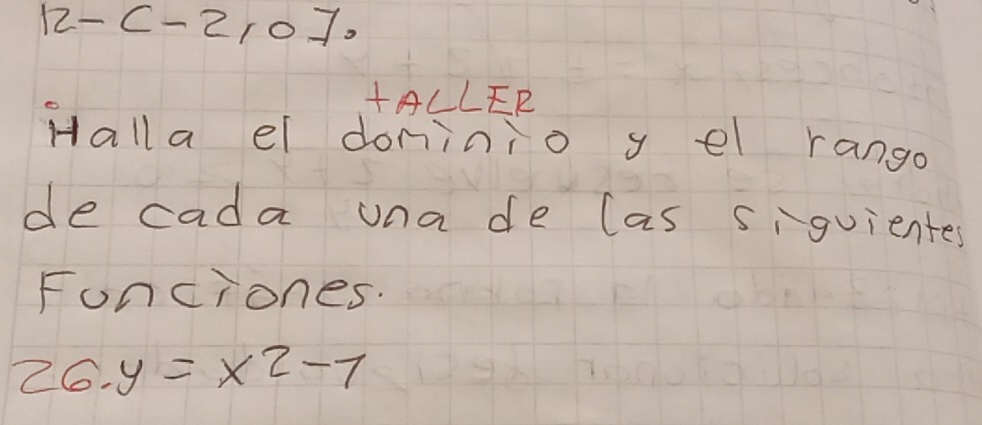 R-(-2,0].
TALLER
Halla el dominio y el rango
de cada una de las siguientes
Funciones.
26. y = x2-1